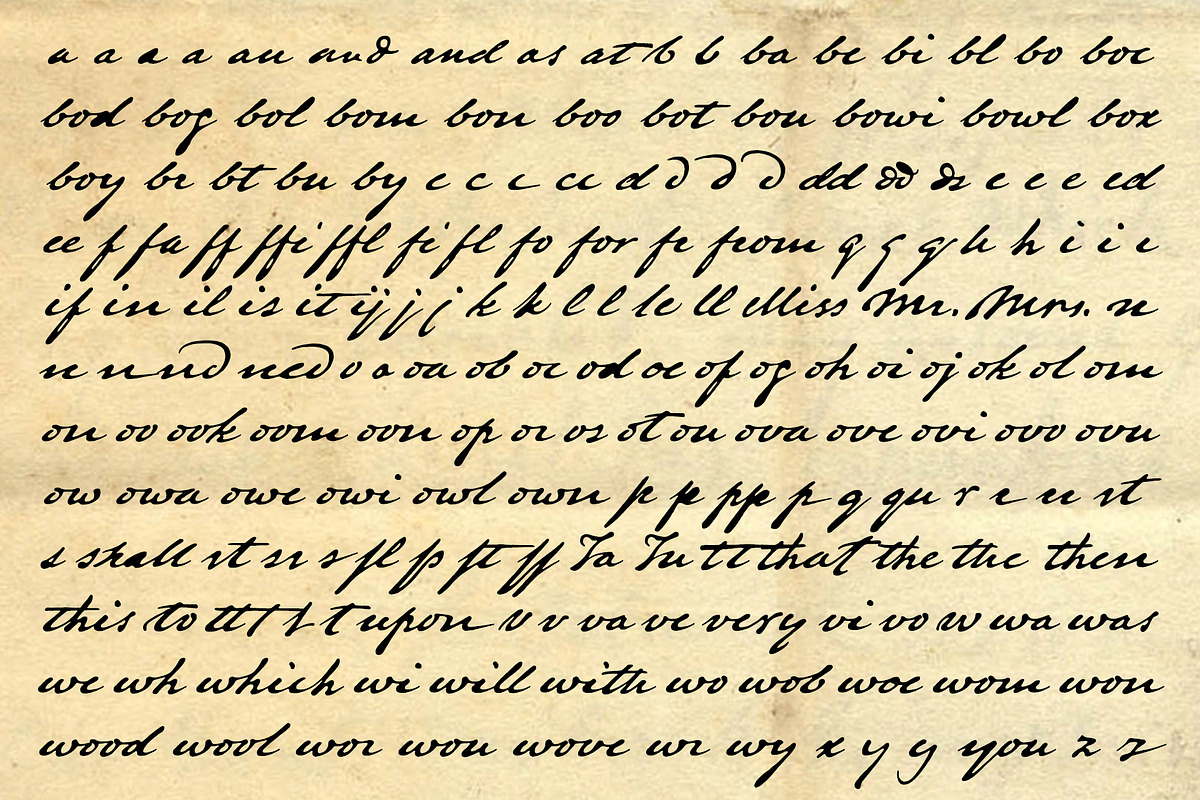 a a a a an and and as at b b ba be bi bl bo boc
bod bog bol bom bon boo bot bou bowi bowl box
boy br bt bu by c c c cc d d d d dd dd ds e e e ed
ee f fa ff ffi ffl fi fl fo for fr from g g g h h i i i
if in il is it ij j j k k l l le ll Miss Mr. Mrs. n
n n nd ned o o oa ob oc od oe of og oh oi oj ok ol om
on oo ook oom oon op or os ot ou ova ove ovi ovo ovu
ow owa owe owi owl own p p pp p q qu r r rr rt
s shall st sr s fl fs ft ff Ta Tu tt that the the then
this to tt t t t upon v v va ve very vi vo w wa was
we wh which wi will with wo wob woe wom won
wood wool wor wou wove wr wy x y y you z z